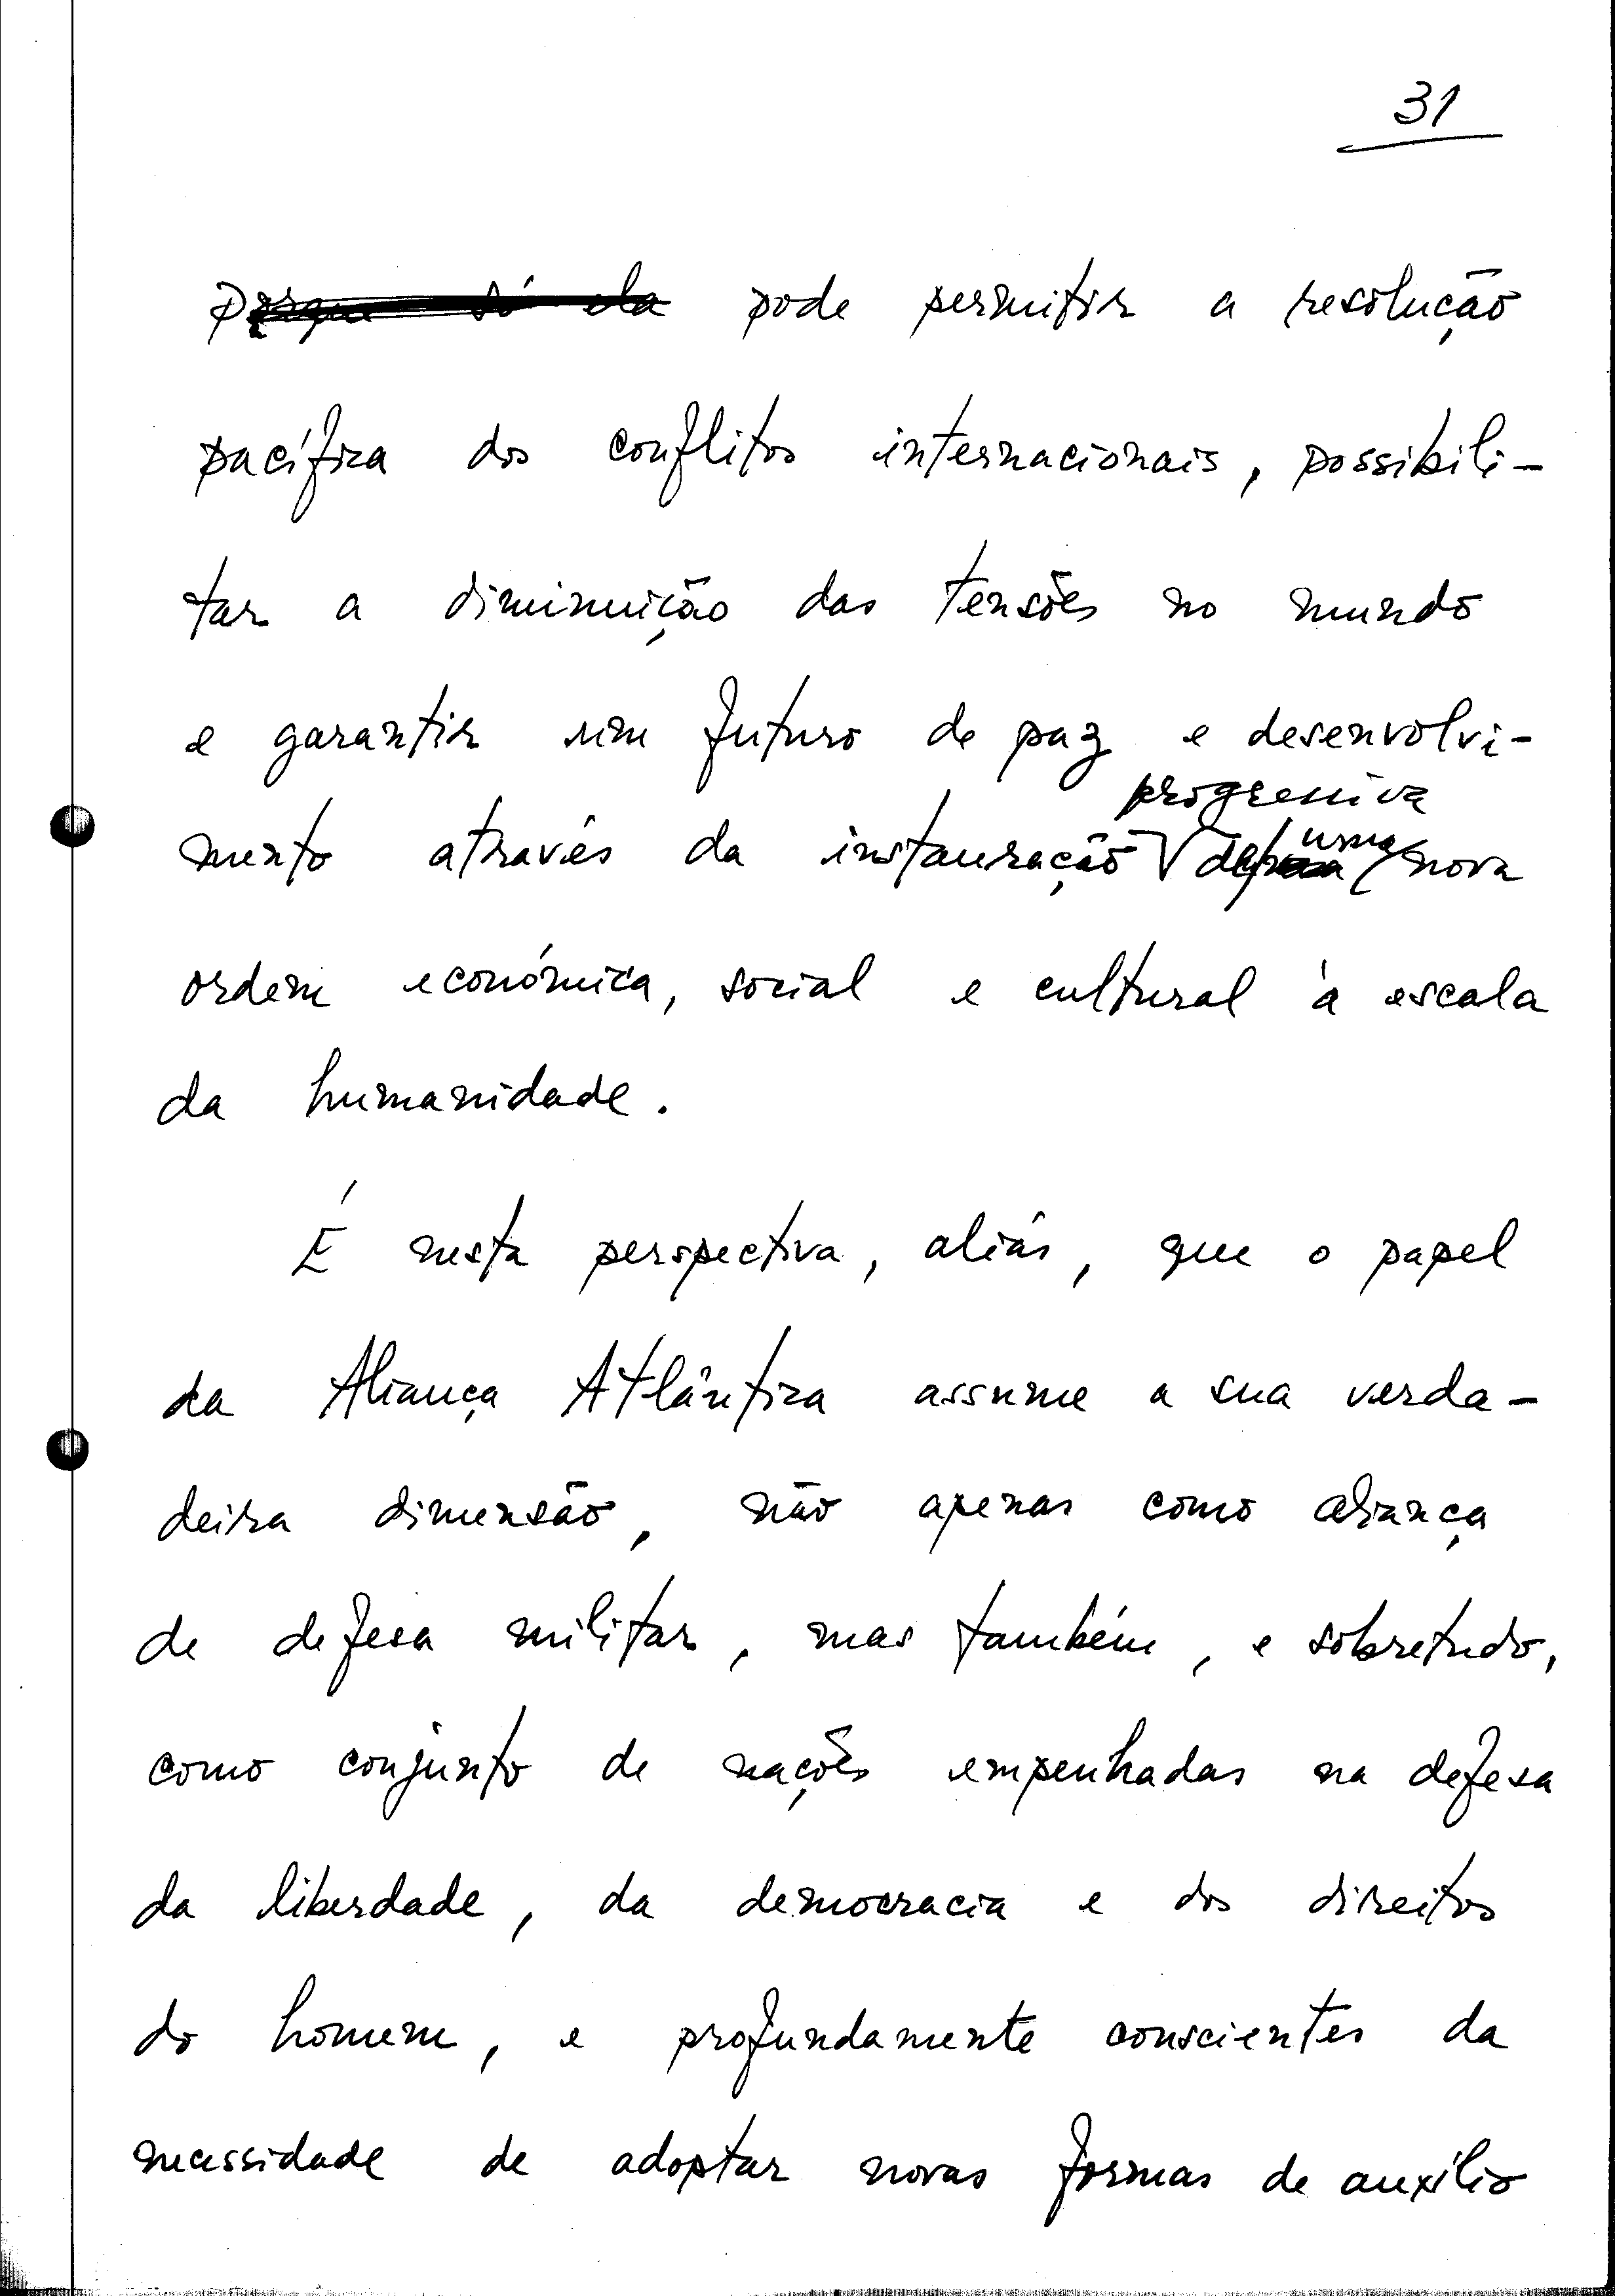 31
porque só ela pode permitir a resolução
pacífica dos conflitos internacionais, possibili-
tar a diminuição das tensões no mundo
e garantir um futuro de paz e desenvolvi-
progressiva
mento através da instauração de uma nova
ordem económica, social e cultural à escala
da humanidade.
É nesta perspectiva, aliás, que o papel
da Aliança Atlântica assume a sua verda-
deira dimensão, não apenas como aliança
de defesa militar, mas também, e sobretudo,
como conjunto de nações empenhadas na defesa
da liberdade, da democracia e dos direitos
do homem, e profundamente conscientes da
necessidade de adoptar novas formas de auxílio